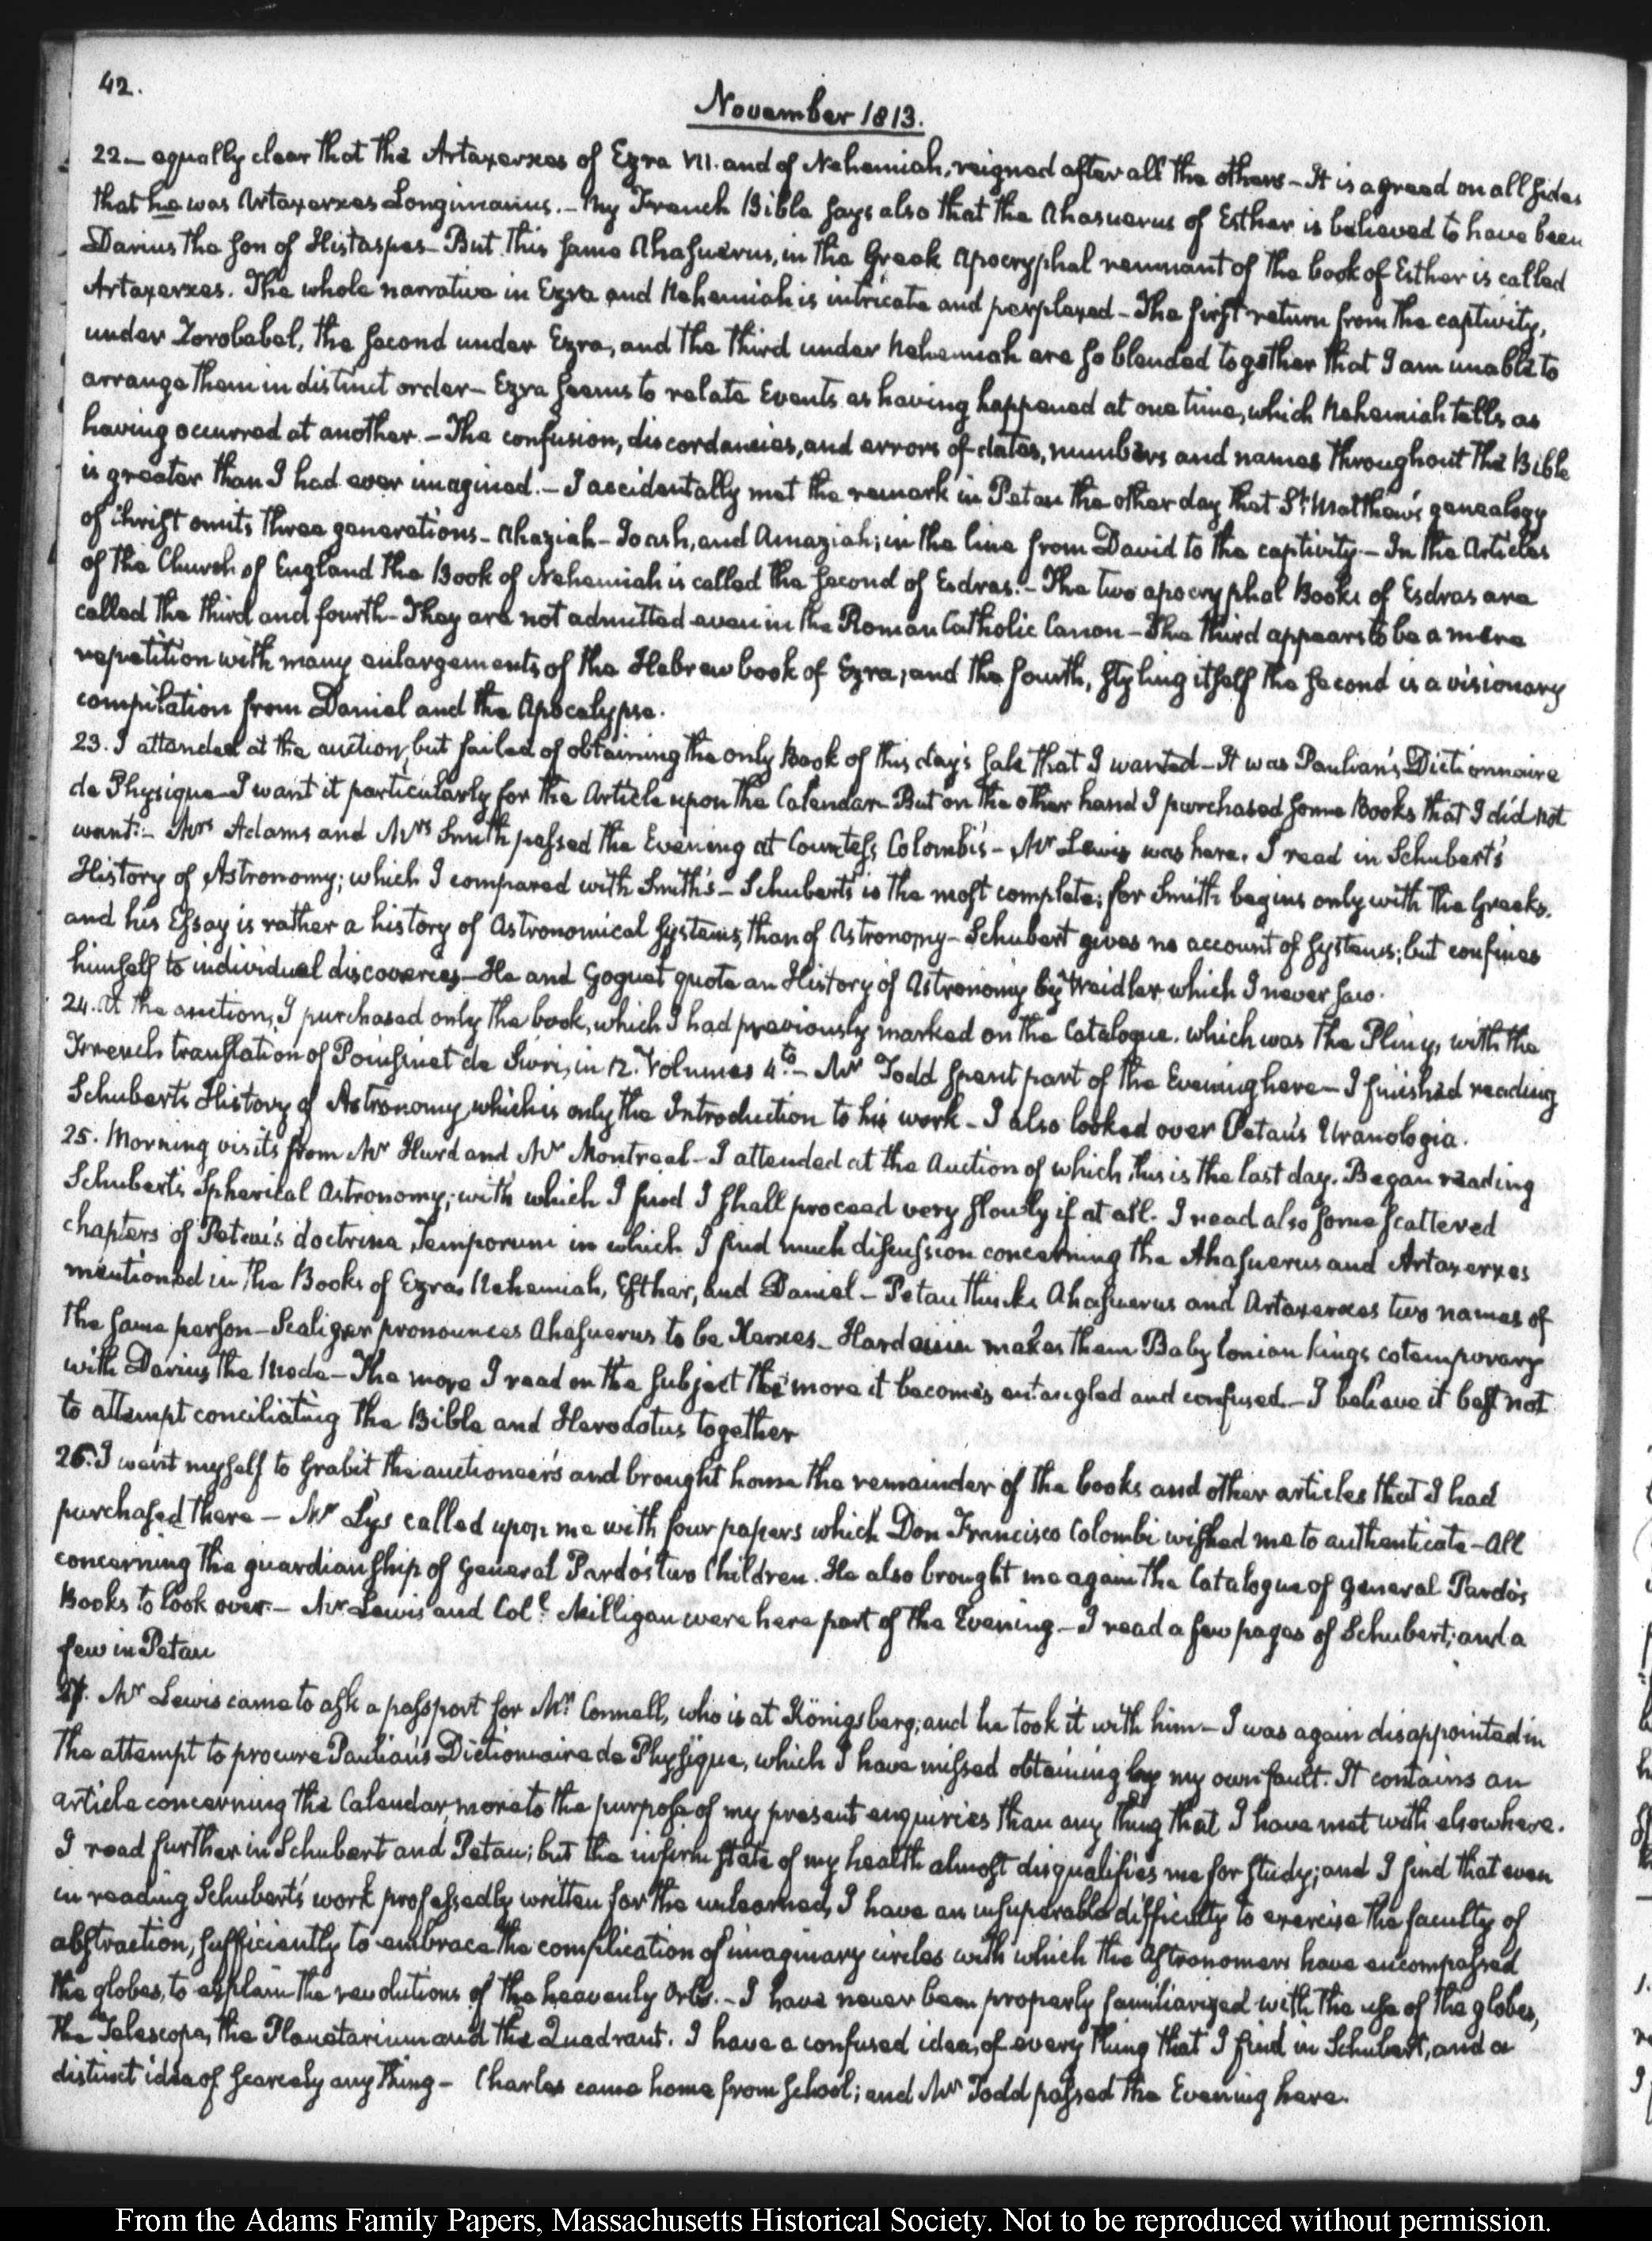 42.
November 1813.
22 — equally clear that the Artaxerxes of Ezra VII. and of Nehemiah, reigned after all the others – It is agreed on all sides
that he was Artaxerxes Longimanus. – My French Bible says also that the Ahasuerus of Esther is believed to have been
Darius the son of Histaspes – But this same Ahasuerus, in the Greek Apocryphal remnant of the book of Esther is called
Artaxerxes. The whole narrative in Ezra and Nehemiah is intricate and perplexed – The first return from the captivity,
under Zorobabel, the second under Ezra, and the third under Nehemiah are so blended together that I am unable to
arrange them in distinct order – Ezra seems to relate Events as having happened at one time, which Nehemiah tells as
having occurred at another. – The confusion, discordancies, and errors of dates, numbers and names throughout the Bible
is greater than I had ever imagined. – I accidentally met the remark in Petau the other day that St. Matthew's genealogy
of Christ omits three generations – Ahaziah – Joash, and Amaziah; in the line from David to the captivity. – In the Articles
of the Church of England the Book of Nehemiah is called the second of Esdras. – The two apocryphal Books of Esdras are
called the third and fourth – They are not admitted even in the Roman Catholic Canon – The third appears to be a mere
repetition with many enlargements of the Hebrew book of Ezra; and the fourth, styling itself the second is a visionary
compilation from Daniel and the Apocalypse.
23. I attended at the auction, but failed of obtaining the only Book of this day's sale that I wanted – It was Paulian's Dictionnaire
de Physique – I want it particularly for the Article upon the Calendar – But on the other hand I purchased some Books that I did not
want. – Mrs Adams and Mrs Smith passed the Evening at Countess Colombi's – Mr Lewis was here. I read in Schubert's
History of Astronomy; which I compared with Smith's – Schubert's is the most complete; for Smith begins only with the Greeks.
and his Essay is rather a history of Astronomical systems, than of Astronomy – Schubert gives no account of systems; but confines
himself to individual discoveries – He and Goguet quote an History of Astronomy by Weidler which I never saw.
24. At the auction, I purchased only the book, which I had previously marked on the Catalogue. which was the Pliny, with the
French translation of Poinsinet de Sivri, in 12. Volumes 4to. – Mr Todd spent part of the Evening here – I finished reading
Schubert's History of Astronomy, which is only the Introduction to his work – I also looked over Petau's Uranologia.
25. Morning visits from Mr Hurd and Mr Montreal – I attended at the Auction of which this is the last day. Began reading
Schubert's Spherical Astronomy; with which I find I shall proceed very slowly if at all. I read also some scattered
chapters of Petau's doctrina Temporum in which I find much discussion concerning the Ahasuerus and Artaxerxes
mentioned in the Books of Ezra, Nehemiah, Esther, and Daniel – Petau thinks Ahasuerus and Artaxerxes two names of
the same person – Scaliger pronounces Ahasuerus to be Xerxes – Hardouin makes them Babylonian Kings cotemporary
with Darius the Mede – The more I read on the subject the more it becomes entangled and confused – I believe it best not
to attempt conciliating the Bible and Herodotus together
26. I went myself to Grabit the auctioneer's and brought home the remainder of the books and other articles that I had
purchased there – Mr Lys called upon me with four papers which Don Francisco Colombi wished me to authenticate – All
concerning the guardianship of General Pardo's two Children. He also brought me again the Catalogue of General Pardo's
Books to look over. – Mr Lewis and Coll. Milligan were here part of the Evening – I read a few pages of Schubert; and a
few in Petau
27. Mr Lewis came to ask a passport for Mr Connell, who is at Königsberg; and he took it with him – I was again disappointed in
the attempt to procure Paulian's Dictionnaire de Physique, which I have missed obtaining by my own fault. It contains an
article concerning the Calendar, more to the purpose of my present enquiries than any thing that I have met with elsewhere.
I read further in Schubert and Petau; but the infirm state of my health almost disqualifies me for study; and I find that even
in reading Schubert's work professedly written for the unlearned, I have an insuperable difficulty to exercise the faculty of
abstraction, sufficiently to embrace the complication of imaginary circles with which the Astronomers have encompassed
the globes, to explain the revolutions of the heavenly Orbs. – I have never been properly familiarized with the use of the globes,
the Telescope, the Planetarium and the Quadrant. I have a confused idea, of every thing that I find in Schubert, and a
distinct idea of scarcely any thing – Charles came home from school; and Mr Todd passed the Evening here.
From the Adams Family Papers, Massachusetts Historical Society. Not to be reproduced without permission.